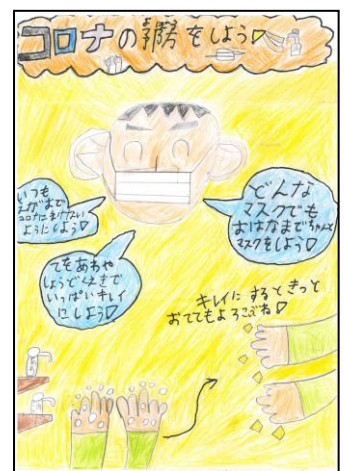 コロナの予防をしよう
いつも
えがおで
コロナにまけない
ようにしよう
どんな
マスクでも
おはなまでちゃんと
マスクをしよう
てをあわや
しょうどくえきで
いっぱいキレイ
にしよう
キレイにするときっと
おててもよろこぶね